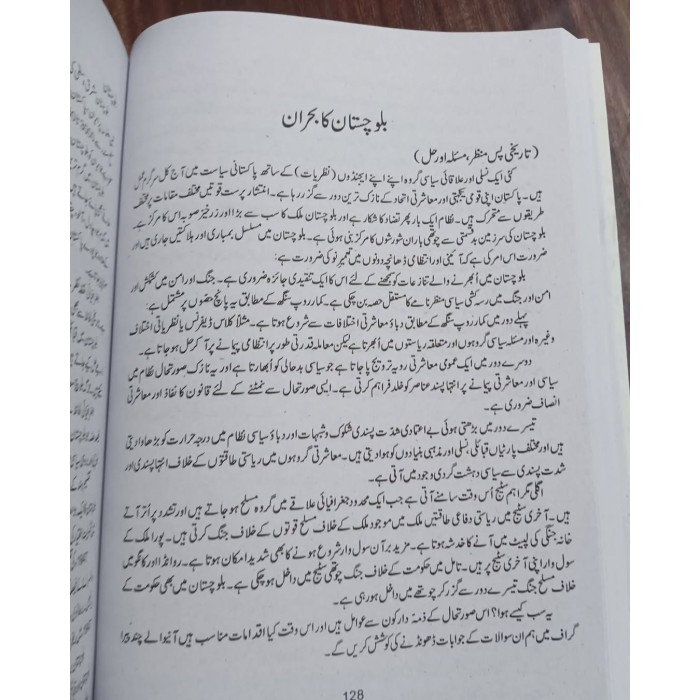 بلوچستان کا بحران
(تاریخی پس منظر، مسئلہ اور حل)
کئی ایک نسلی اور علاقائی سیاسی گروہ اپنے اپنے ایجنڈوں (نظریات) کے ساتھ پاکستانی سیاست میں آج کل سرگرم عمل
ہیں۔ پاکستان اپنی قومی یکجہتی اور معاشرتی اتحاد کے نازک ترین دور سے گزر رہا ہے۔ انتشار پرست قوتیں مختلف مقامات پر مختلف
طریقوں سے متحرک ہیں۔ نظام ایک بار پھر تضاد کا شکار ہے اور بلوچستان ملک کا سب سے بڑا اور زرخیز صوبہ اس کا مرکز ہے۔
بلوچستان کی سرزمین بدقسمتی سے چوتھی بار ان شورشوں کا مرکز بنی ہوئی ہے۔ بلوچستان میں مسلسل بمباری اور ہلاکتیں جاری ہیں اور
ضرورت اس امر کی ہے کہ آئینی اور انتظامی ڈھانچہ دونوں میں تعمیر نو کی ضرورت ہے:
بلوچستان میں اُبھرنے والے تنازعات کو سمجھنے کے لئے اس کا ایک تنقیدی جائزہ ضروری ہے۔ جنگ اور امن میں کشمکش اور
امن اور جنگ میں رسہ کشی سیاسی منظر نامے کا مستقل حصہ بن چکی ہے۔ کمار روپ سنگھ کے مطابق یہ پانچ حصوں پر مشتمل ہے:
پہلے دور میں کمار روپ سنگھ کے مطابق دباؤ معاشرتی اختلافات سے شروع ہوتا ہے۔ مثلاً کلاس ڈیفرنس یا نظریاتی اختلاف
وغیرہ اور مسئلہ سیاسی گروہوں اور متعلقہ ریاستوں میں اُبھرتا ہے لیکن معاملہ قدرتی طور پر انتظامی پیمانے پر آ کر حل ہو جاتا ہے۔
دوسرے دور میں ایک عمومی معاشرتی رویہ ترویج پا جاتا ہے جو سیاسی بدحالی کو اُبھارتا ہے اور یہ نازک صورتحال نظام میں
سیاسی اور معاشرتی پیمانے پر انتہا پسند عناصر کو خلد فراہم کرتی ہے۔ ایسی صورتحال سے نمٹنے کے لئے قانون کا نفاذ اور معاشرتی
انصاف ضروری ہے۔
تیسرے دور میں بڑھتی ہوئی بے اعتمادی شدت پسندی شکوک و شبہات اور دباؤ سیاسی نظام میں درجہ حرارت کو بڑھا دیتی
ہیں اور مختلف پارٹیاں قبائلی، نسلی اور مذہبی بنیادوں کو ہوا دیتی ہیں۔ معاشرتی گروہوں میں ریاستی طاقتوں کے خلاف انتہا پسندی اور
شدت پسندی سے سیاسی دہشت گردی وجود میں آتی ہے۔
اگلی مگر اہم سٹیج اُس وقت سامنے آتی ہے جب ایک محدود جغرافیائی علاقے میں گروہ مسلح ہو جاتے ہیں اور تشدد پر اُتر آتے
ہیں۔ آخری سٹیج میں ریاستی دفاعی طاقتیں ملک میں موجود ملک کے خلاف مسلح قوتوں کے خلاف جنگ کرتی ہیں۔ پورا ملک کے
خانہ جنگی کی لپیٹ میں آنے کا خدشہ ہوتا ہے۔ مزید برآں سول وار شروع ہونے کا بھی شدید امکان ہوتا ہے۔ روانڈا اور کانگو میں
سول وار اپنی آخری سٹیج پر ہیں۔ تامل میں حکومت کے خلاف جنگ چوتھی سٹیج میں داخل ہو چکی ہے۔ بلوچستان میں بھی حکومت کے
خلاف مسلح جنگ تیسرے دور سے گزر کر چوتھے میں داخل ہو رہی ہے۔
یہ سب کیسے ہوا؟ اس صورتحال کے ذمہ دار کون سے عوامل ہیں اور اس وقت کیا اقدامات مناسب ہیں آنیوالے چند پیرا
گراف میں ہم ان سوالات کے جوابات ڈھونڈنے کی کوشش کریں گے۔
128